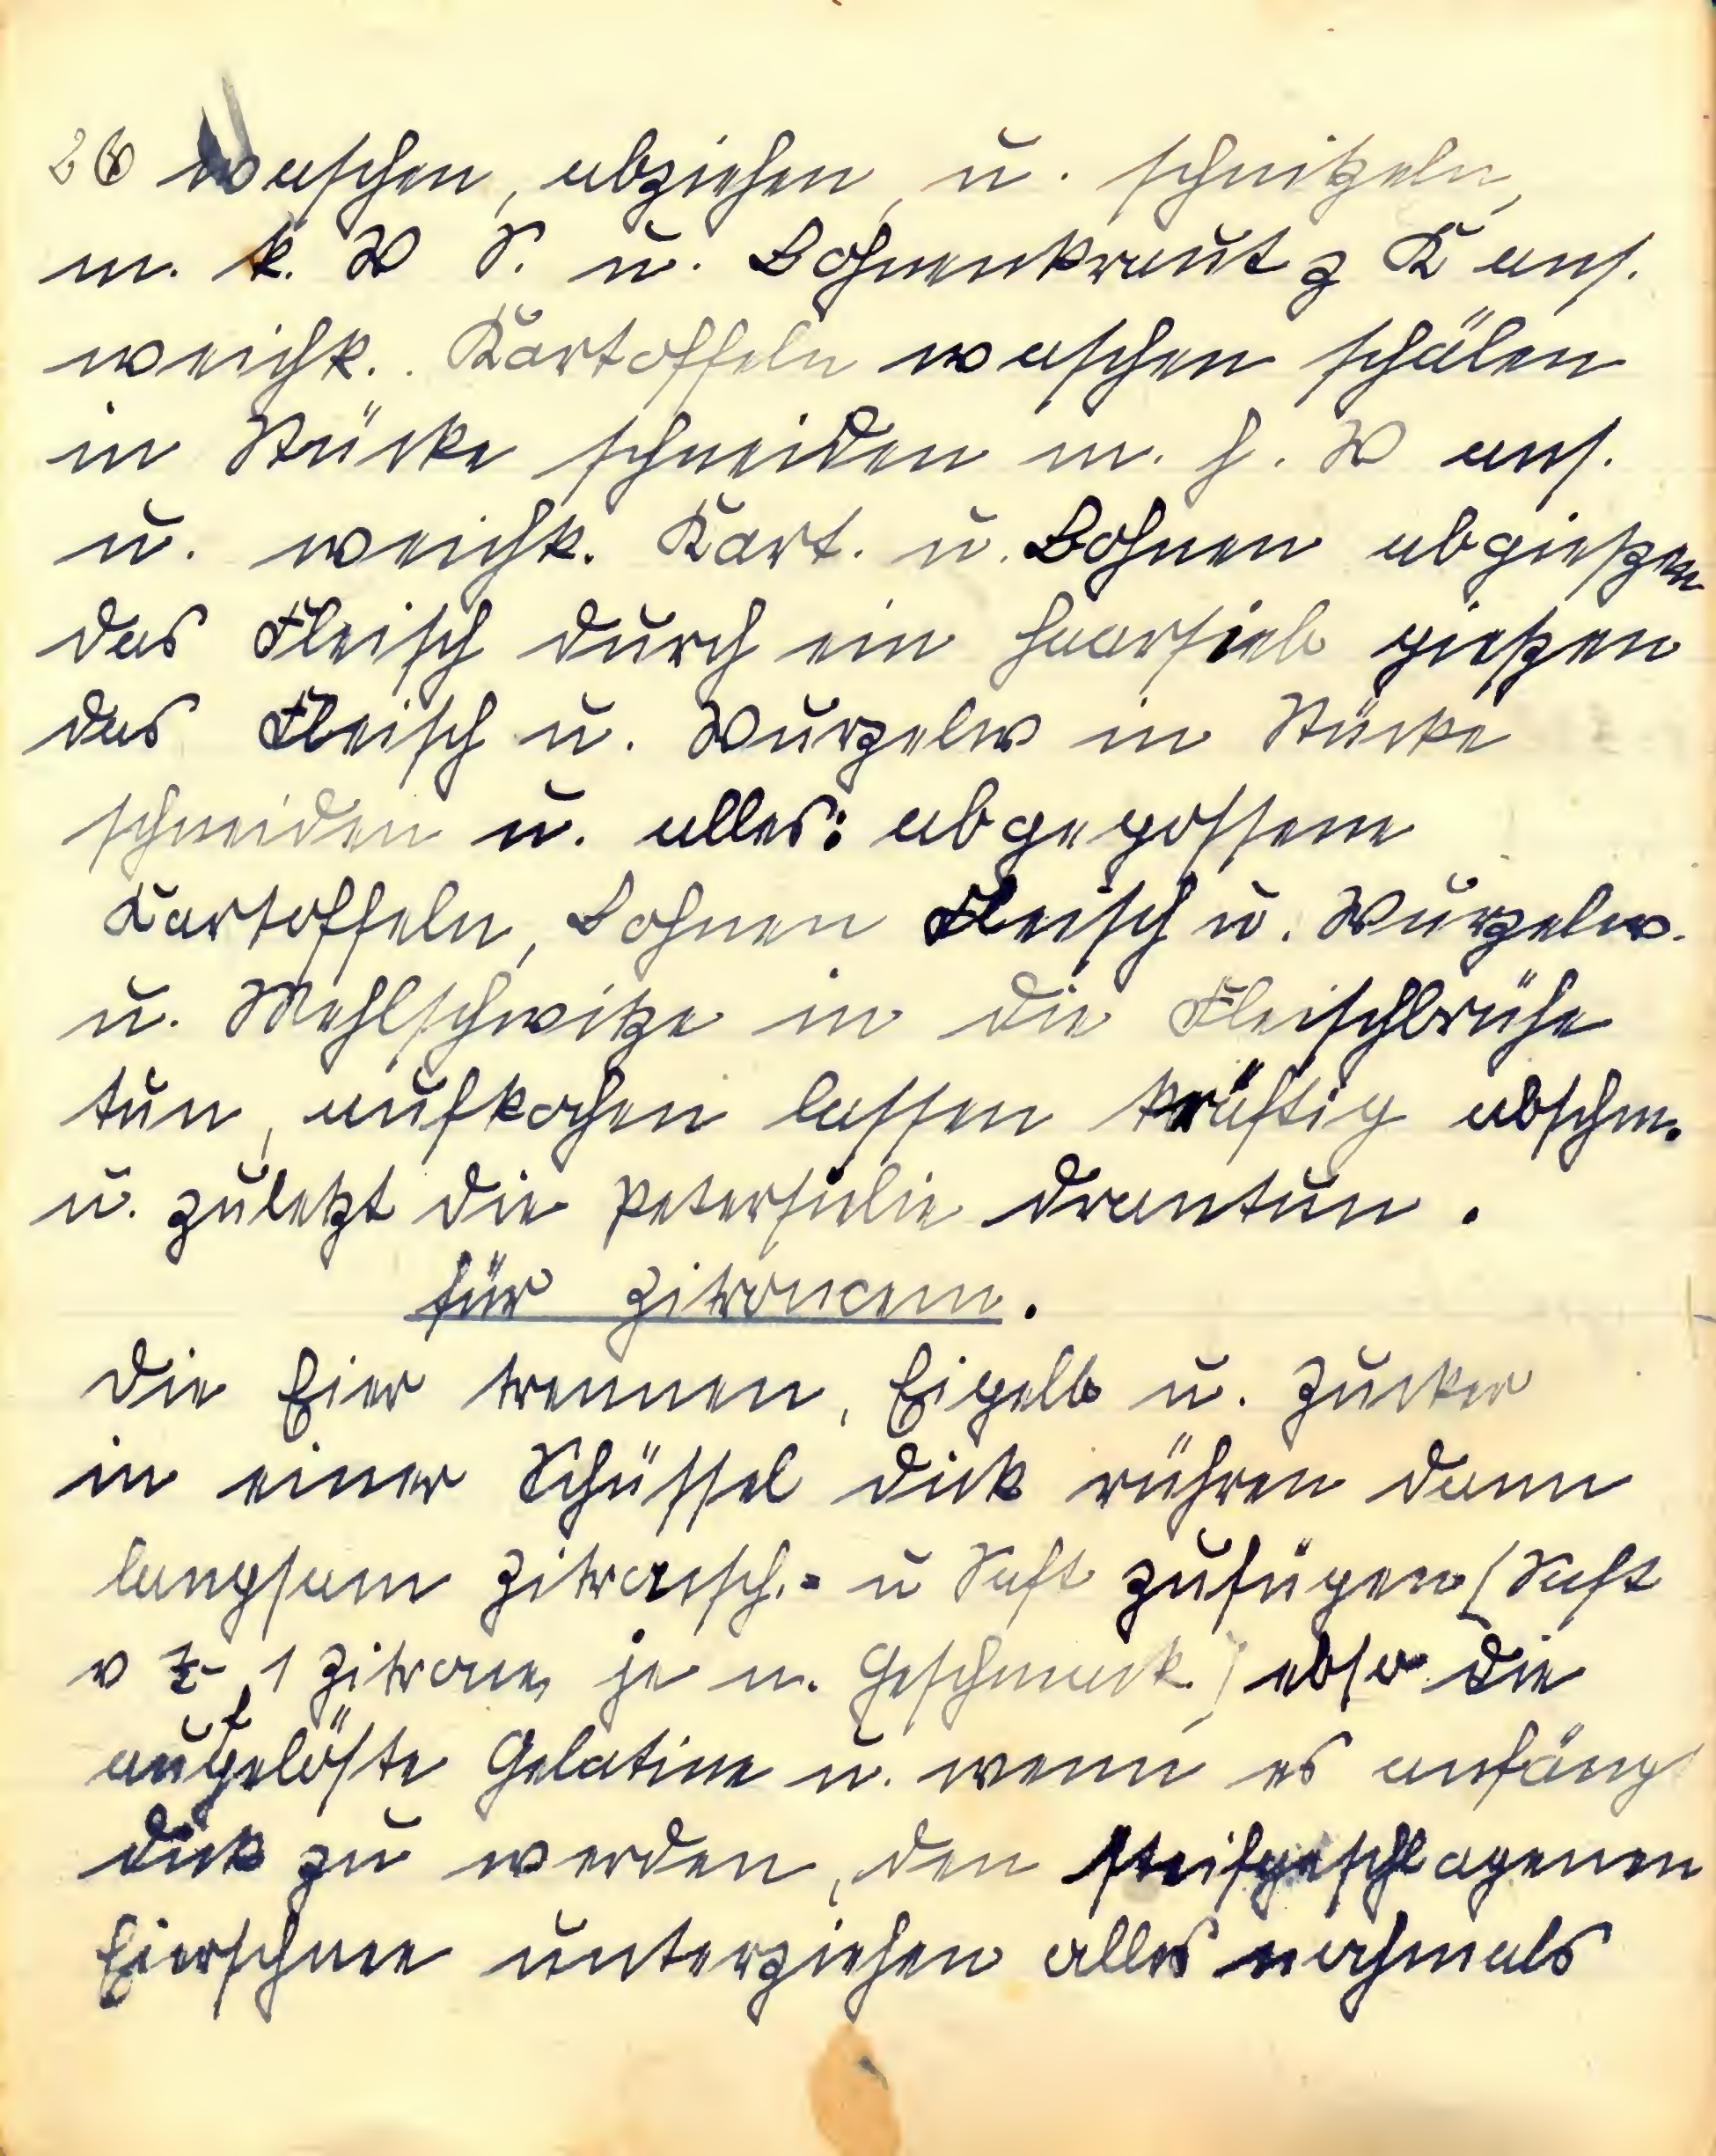 26 waschen, abziehen, u. schnitzeln,
m. k. W S. u. Bohnenkraut z K ans.
weichk. Kartoffeln waschen schälen
in Stücke schneiden m. h. W ans.
u. weichk. Kart. u. Bohnen abgießen
das Fleisch durch ein Haarsieb gießen
das Fleisch u. Wurzelw in Stücke
schneiden u. alles: abgegossene
Kartoffeln, Bohnen Fleisch u. Wurzelw.
u. Mehlschwitze in die Fleischbrühe
tun, aufkochen lassen kräftig abschm.
u. zuletzt die Petersilie drantun.
für Zitroncem.
Die Eier trennen, Eigelb u. Zucker
in einer Schüssel dick rühren dann
langsam Zitronsch.- u Saft zufügen (Saft
v ½-1 Zitrone, je n. Geschmack) ebso die
aufgelöste Gelatine u. wenn es anfängt
dick zu werden, den steifgeschlagenen
Eierschnee unterziehen alles nochmals